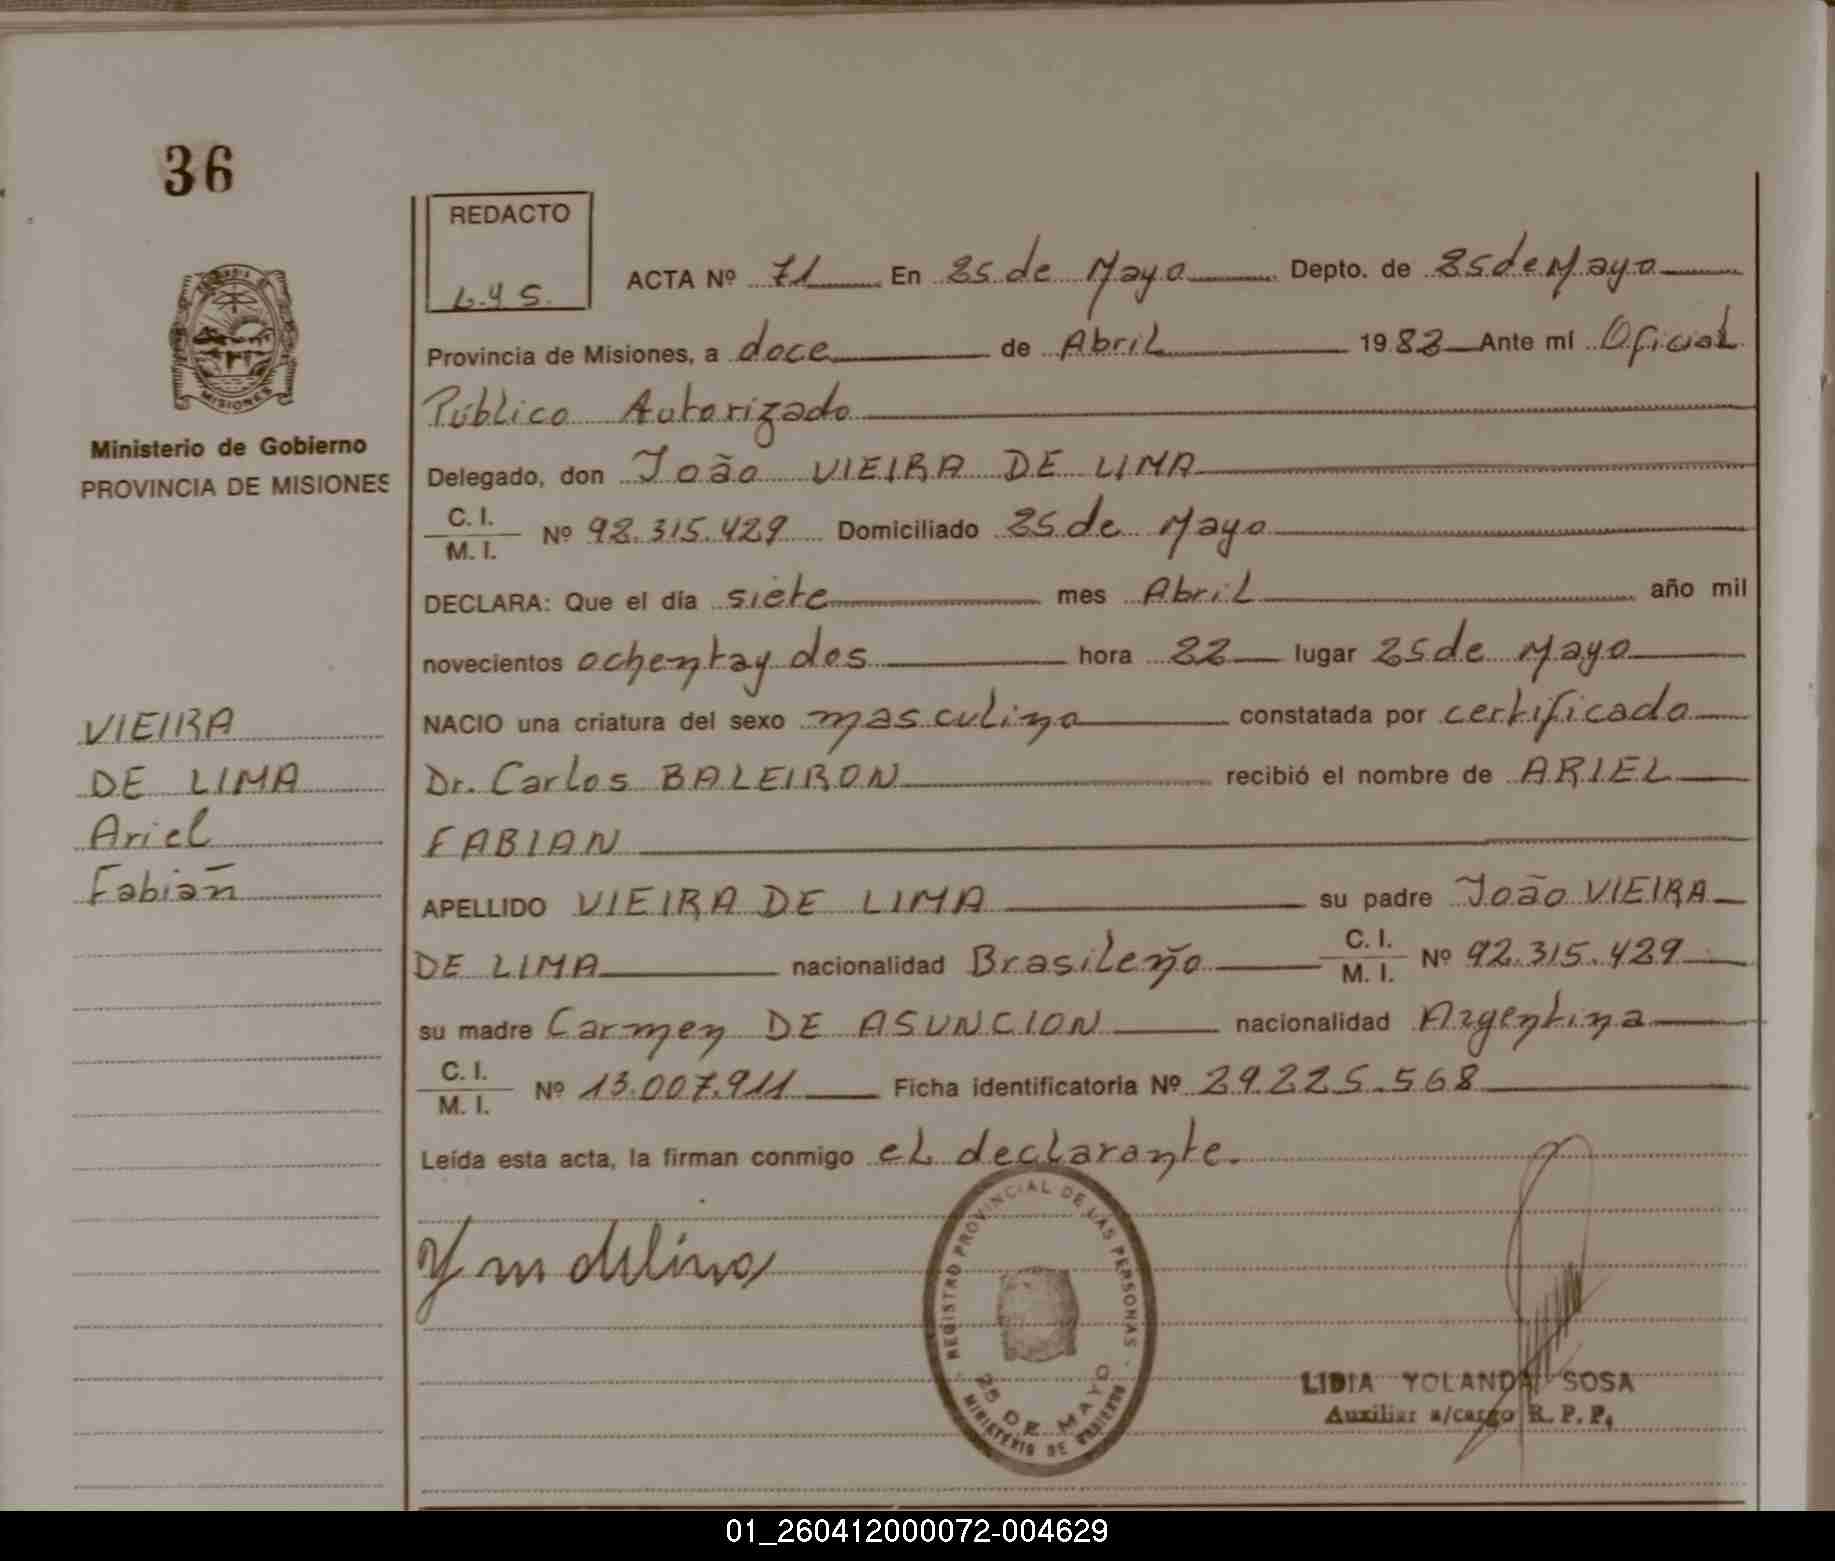 36
REDACTO
L.Y S.
ACTA Nº 71 En 25 de Mayo Depto. de 25 de Mayo
Provincia de Misiones, a doce de Abril 1982 Ante mí Oficial
Público Autorizado
Delegado, don João VIEIRA DE LIMA
C. I.
M. I. Nº 92.315.429 Domiciliado 25 de Mayo
DECLARA: Que el día siete mes Abril año mil
novecientos ochentay dos hora 22 lugar 25 de Mayo
NACIO una criatura del sexo masculino constatada por certificado
Dr. Carlos BALEIRON recibió el nombre de ARIEL
FABIAN
APELLIDO VIEIRA DE LIMA su padre João VIEIRA
DE LIMA nacionalidad Brasileño C. I. M. I. Nº 92.315.429
su madre Carmen DE ASUNCION nacionalidad Argentina
C. I.
M. I. Nº 13.007.911 Ficha identificatoria Nº 29.225.568
Leída esta acta, la firman conmigo el declarante.
MISIONES
Ministerio de Gobierno
PROVINCIA DE MISIONES
VIEIRA
DE LIMA
Ariel
Fabián
REGISTRO PROVINCIAL DE LAS PERSONAS
25 DE MAYO
MINISTERIO DE GOBIERNO
LIDIA YOLANDA SOSA
Auxiliar a/cargo R. P. P.
01_260412000072-004629